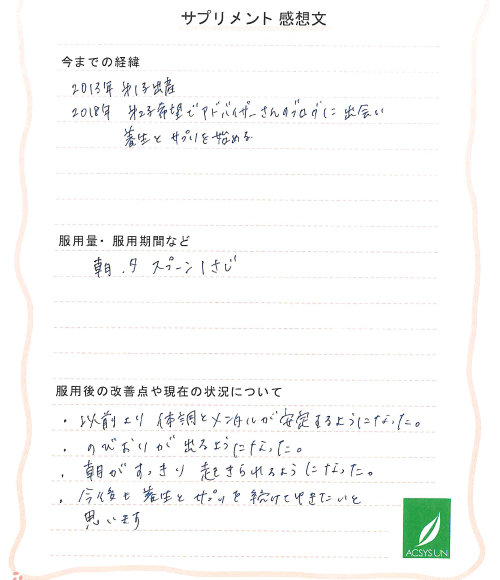 サプリメント 感想文
今までの経緯
2013年 第1子出産
2018年 第2子希望でアドバイザーさんのブログに出会い
養生とサプリを始める
服用量・服用期間など
朝.夕 スプーン1さじ
服用後の改善点や現在の状況について
・以前より 体調とメンタルが安定するようになった。
・のびおりが出るようになった。
・朝がすっきり 起きられるようになった。
・今後も養生とサプリを続けて行きたいと
思います
ACSYSUN